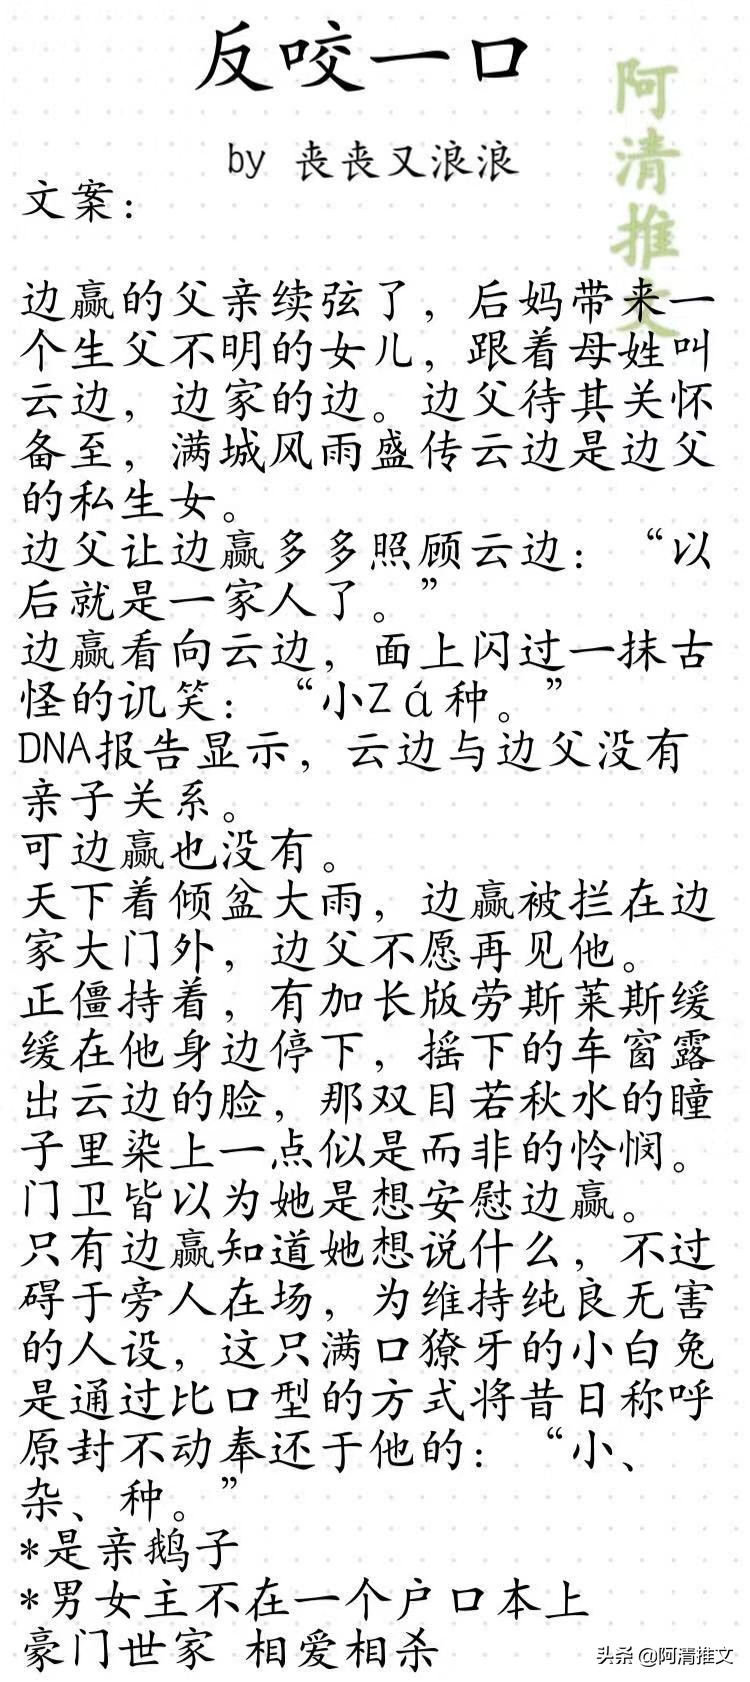 反咬一口
by 丧丧又浪浪
阿清推文
文案：
边赢的父亲续弦了，后妈带来一
个生父不明的女儿，跟着母姓叫
云边，边家的边。边父待其关怀
备至，满城风雨盛传云边是边父
的私生女。
边父让边赢多多照顾云边：“以
后就是一家人了。”
边赢看向云边，面上闪过一抹古
怪的讥笑：“小Zá种。”
DNA报告显示，云边与边父没有
亲子关系。
可边赢也没有。
天下着倾盆大雨，边赢被拦在边
家大门外，边父不愿再见他。
正僵持着，有加长版劳斯莱斯缓
缓在他身边停下，摇下的车窗露
出云边的脸，那双目若秋水的瞳
子里染上一点似是而非的怜悯。
门卫皆以为她是想安慰边赢。
只有边赢知道她想说什么，不过
碍于旁人在场，为维持纯良无害
的人设，这只满口獠牙的小白兔
是通过比口型的方式将昔日称呼
原封不动奉还于他的：“小、
杂、种。”
*是亲鹅子
*男女主不在一个户口本上
豪门世家 相爱相杀
头条 @阿清推文